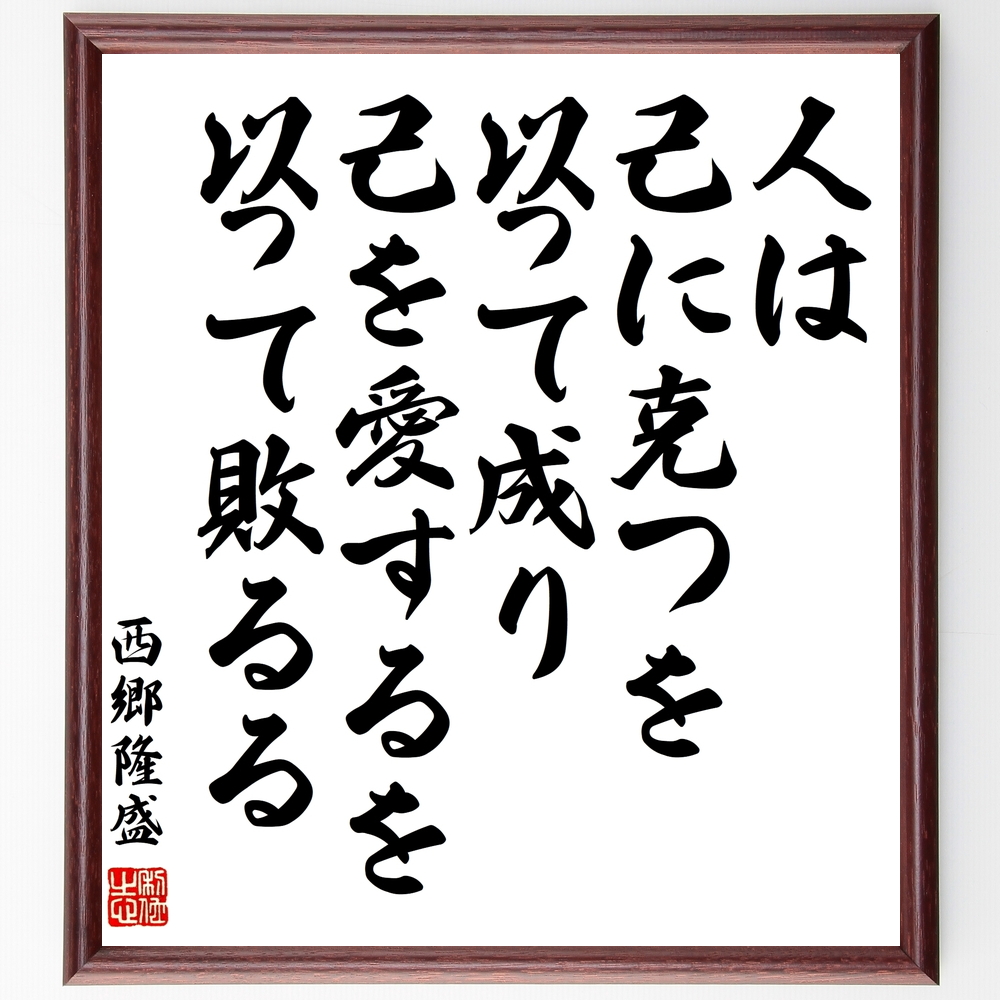 人は
己に克つを
以って成り
己を愛するを
以って敗るる
西郷隆盛